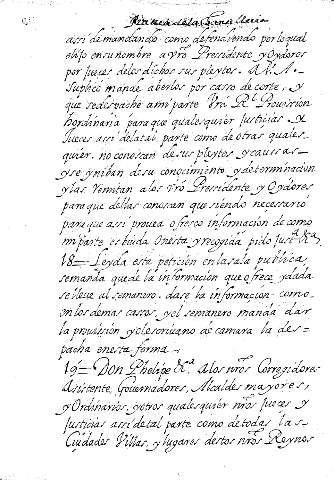 Practica de la Chancilleria
assi demandando como defendiendo por lo qual
elijo en su nombre a vro Presidente y Oydores
por Jueces de los dichos sus pleytos. A V. A.
suplico mande aberlos por casso de corte, y
que se despache a mi parte Vra Rl Provission
hordinaria para que quales quier Justicias, y
Jueces assi de la tal parte como de otras quales
quier, no conoscan de sus pleytos y caussas
y se ynivan de su conocimiento y determinacion
y las remitan a los vro Presidente y Oydores
para que dellas conoscan que siendo necesario
para que assi provea ofresco información de como
mi parte es biuda onesta y recogida pido Justa &a
18 — Leyda esta petición en la sala publica
se manda que de la información que ofrece y dada
se lleve al semanero. dase la informacion como
en los demas casos, y el semanero manda dar
la provission y el escrivano de camara la des-
pacha en esta forma —
19 — Don Phelipe &a A los nros Corregidores
Asistente, Governadores, Alcaldes mayores,
y Ordinarios, y otros quales quier nros Jueces y
Justicias assi de tal parte como de todas las
Ciudades Villas, y lugares destos nros Reynos